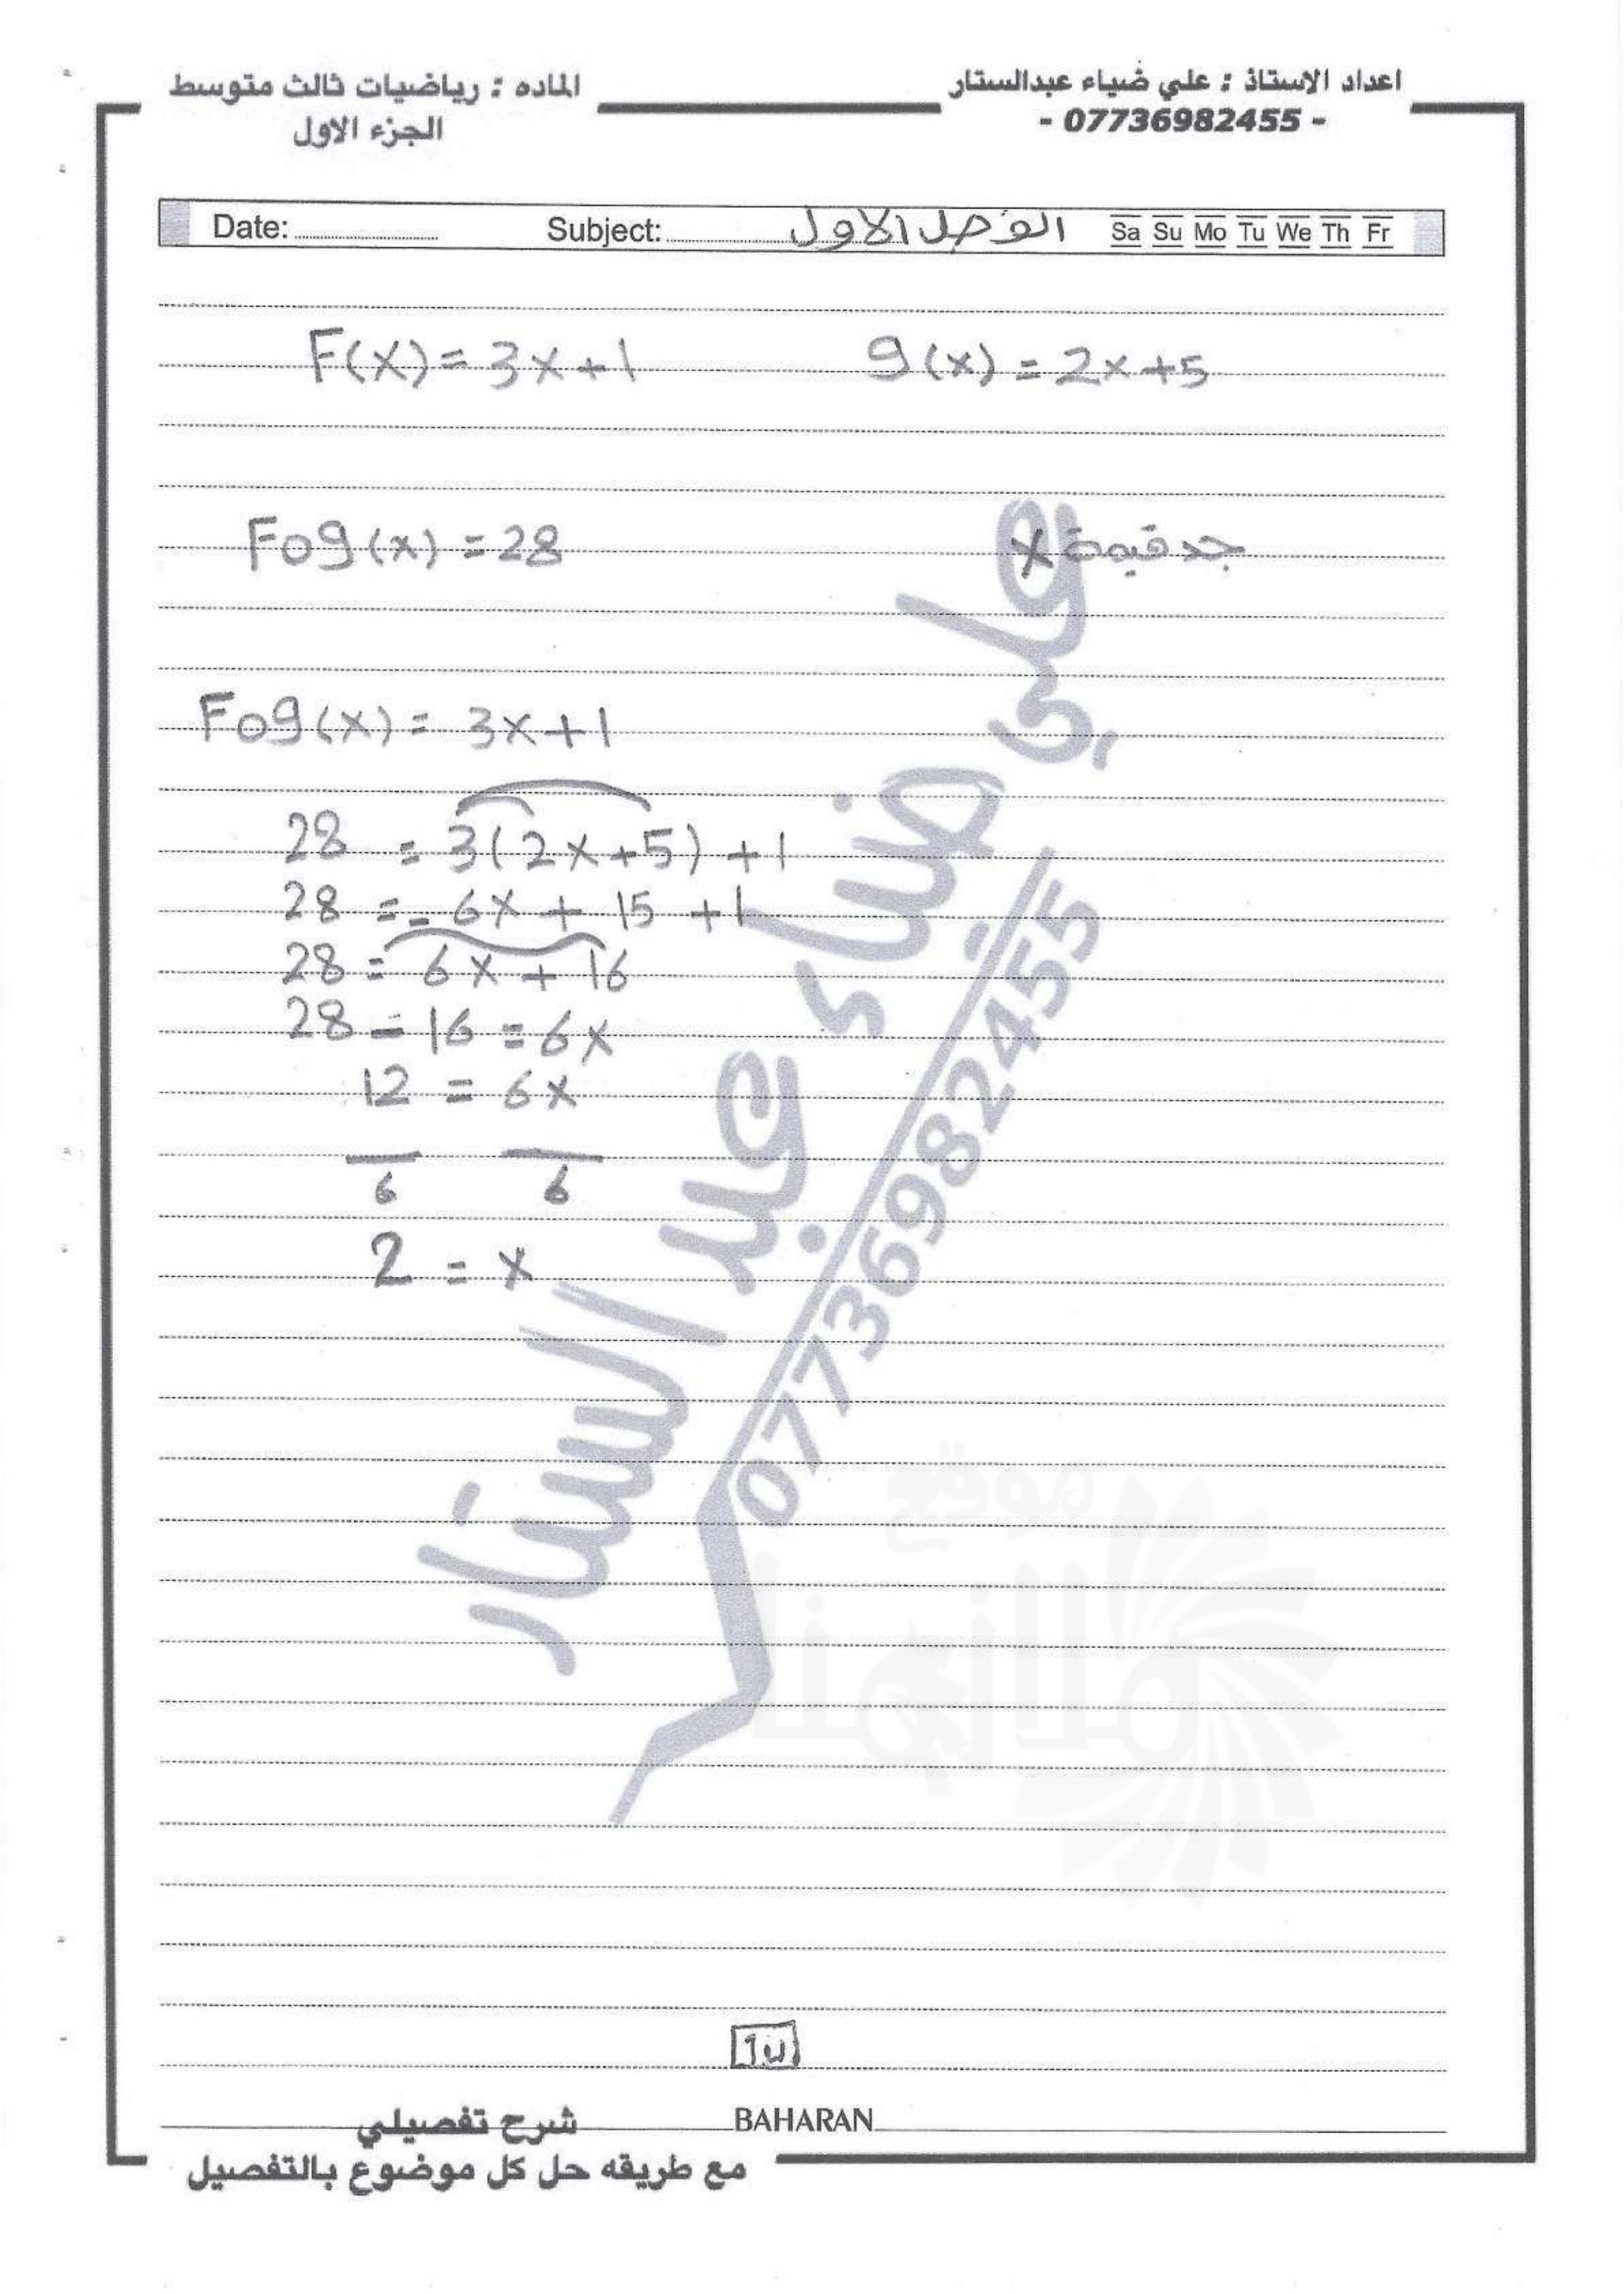 اعداد الاستاذ : علي ضياء عبدالستار
- 07736982455 -
الماده : رياضيات ثالث متوسط
الجزء الاول
Date: Subject: الفصل الاول Sa Su Mo Tu We Th Fr
F(x) = 3x + 1 g(x) = 2x + 5
Fog(x) = 28 جد قيمة x
Fog(x) = 3x + 1
28 = 3(2x + 5) + 1
28 = 6x + 15 + 1
28 = 6x + 16
28 - 16 = 6x
12 = 6x
6 6
2 = x
علي ضياء عبد الستار
07736982455
موقع
BAHARAN
شرح تفصيلي
مع طريقه حل كل موضوع بالتفصيل